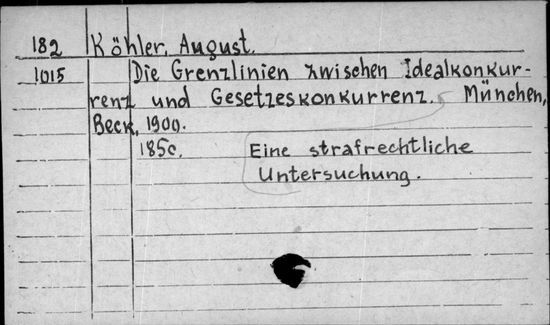 182 Köhler, August.
1015 Die Grenzlinien zwischen Idealkonkur-
renz und Gesetzeskonkurrenz. München,
Beck, 1900.
185c. Eine strafrechtliche
Untersuchung.